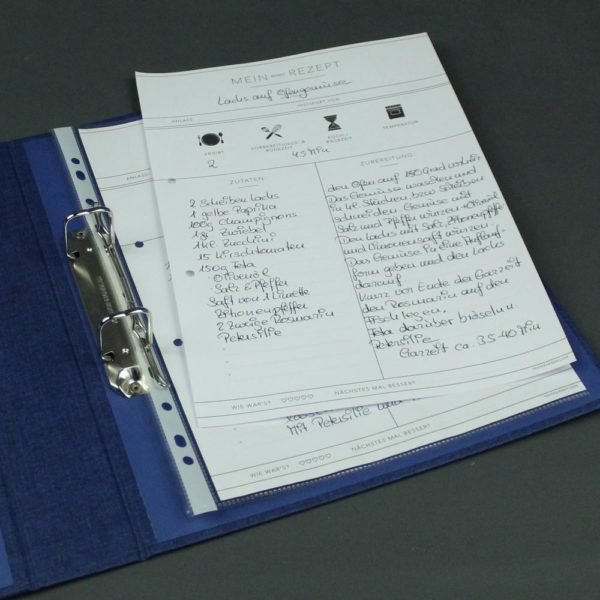 MEIN REZEPT
Lachs auf Ofengemüse
ANLASS
INSPIRIERT VON
ERGIBT
VORBEREITUNGS- &
RUHEZEIT
KOCH-/
BACKZEIT
TEMPERATUR
2
45 Min
ZUTATEN:
2 Scheiben Lachs
1 gelbe Paprika
100g Champignons
Zwiebel
Zucchini
15 Kirschtomaten
150g Feta
Olivenöl
Salz & Pfeffer
Saft von 1 Limette
Zitronenpfeffer
2 Zweige Rosmarin
Petersilie
ZUBEREITUNG:
den Ofen auf 180 Grad
Das Gemüse waschen und
in Stücken bzw. Scheiben
schneiden Gemüse mit
Salz und Pfeffer würzen +
Den Lachs mit Salz, Zitronenpfeffer
und Limonensaft würzen.
Das Gemüse für eine Auflauf-
form geben und den Lachs
darauf
Kurz vor Ende der Garzeit
den Rosmarin auf den
Fisch legen.
Feta darüber bröseln
Petersilie
Garzeit ca. 35-40 Min
WIE WAR'S?
NÄCHSTES MAL BESSER?
ANLASS
Mit Petersilie
WIE WAR'S?
NÄCHSTES MAL BESSER?